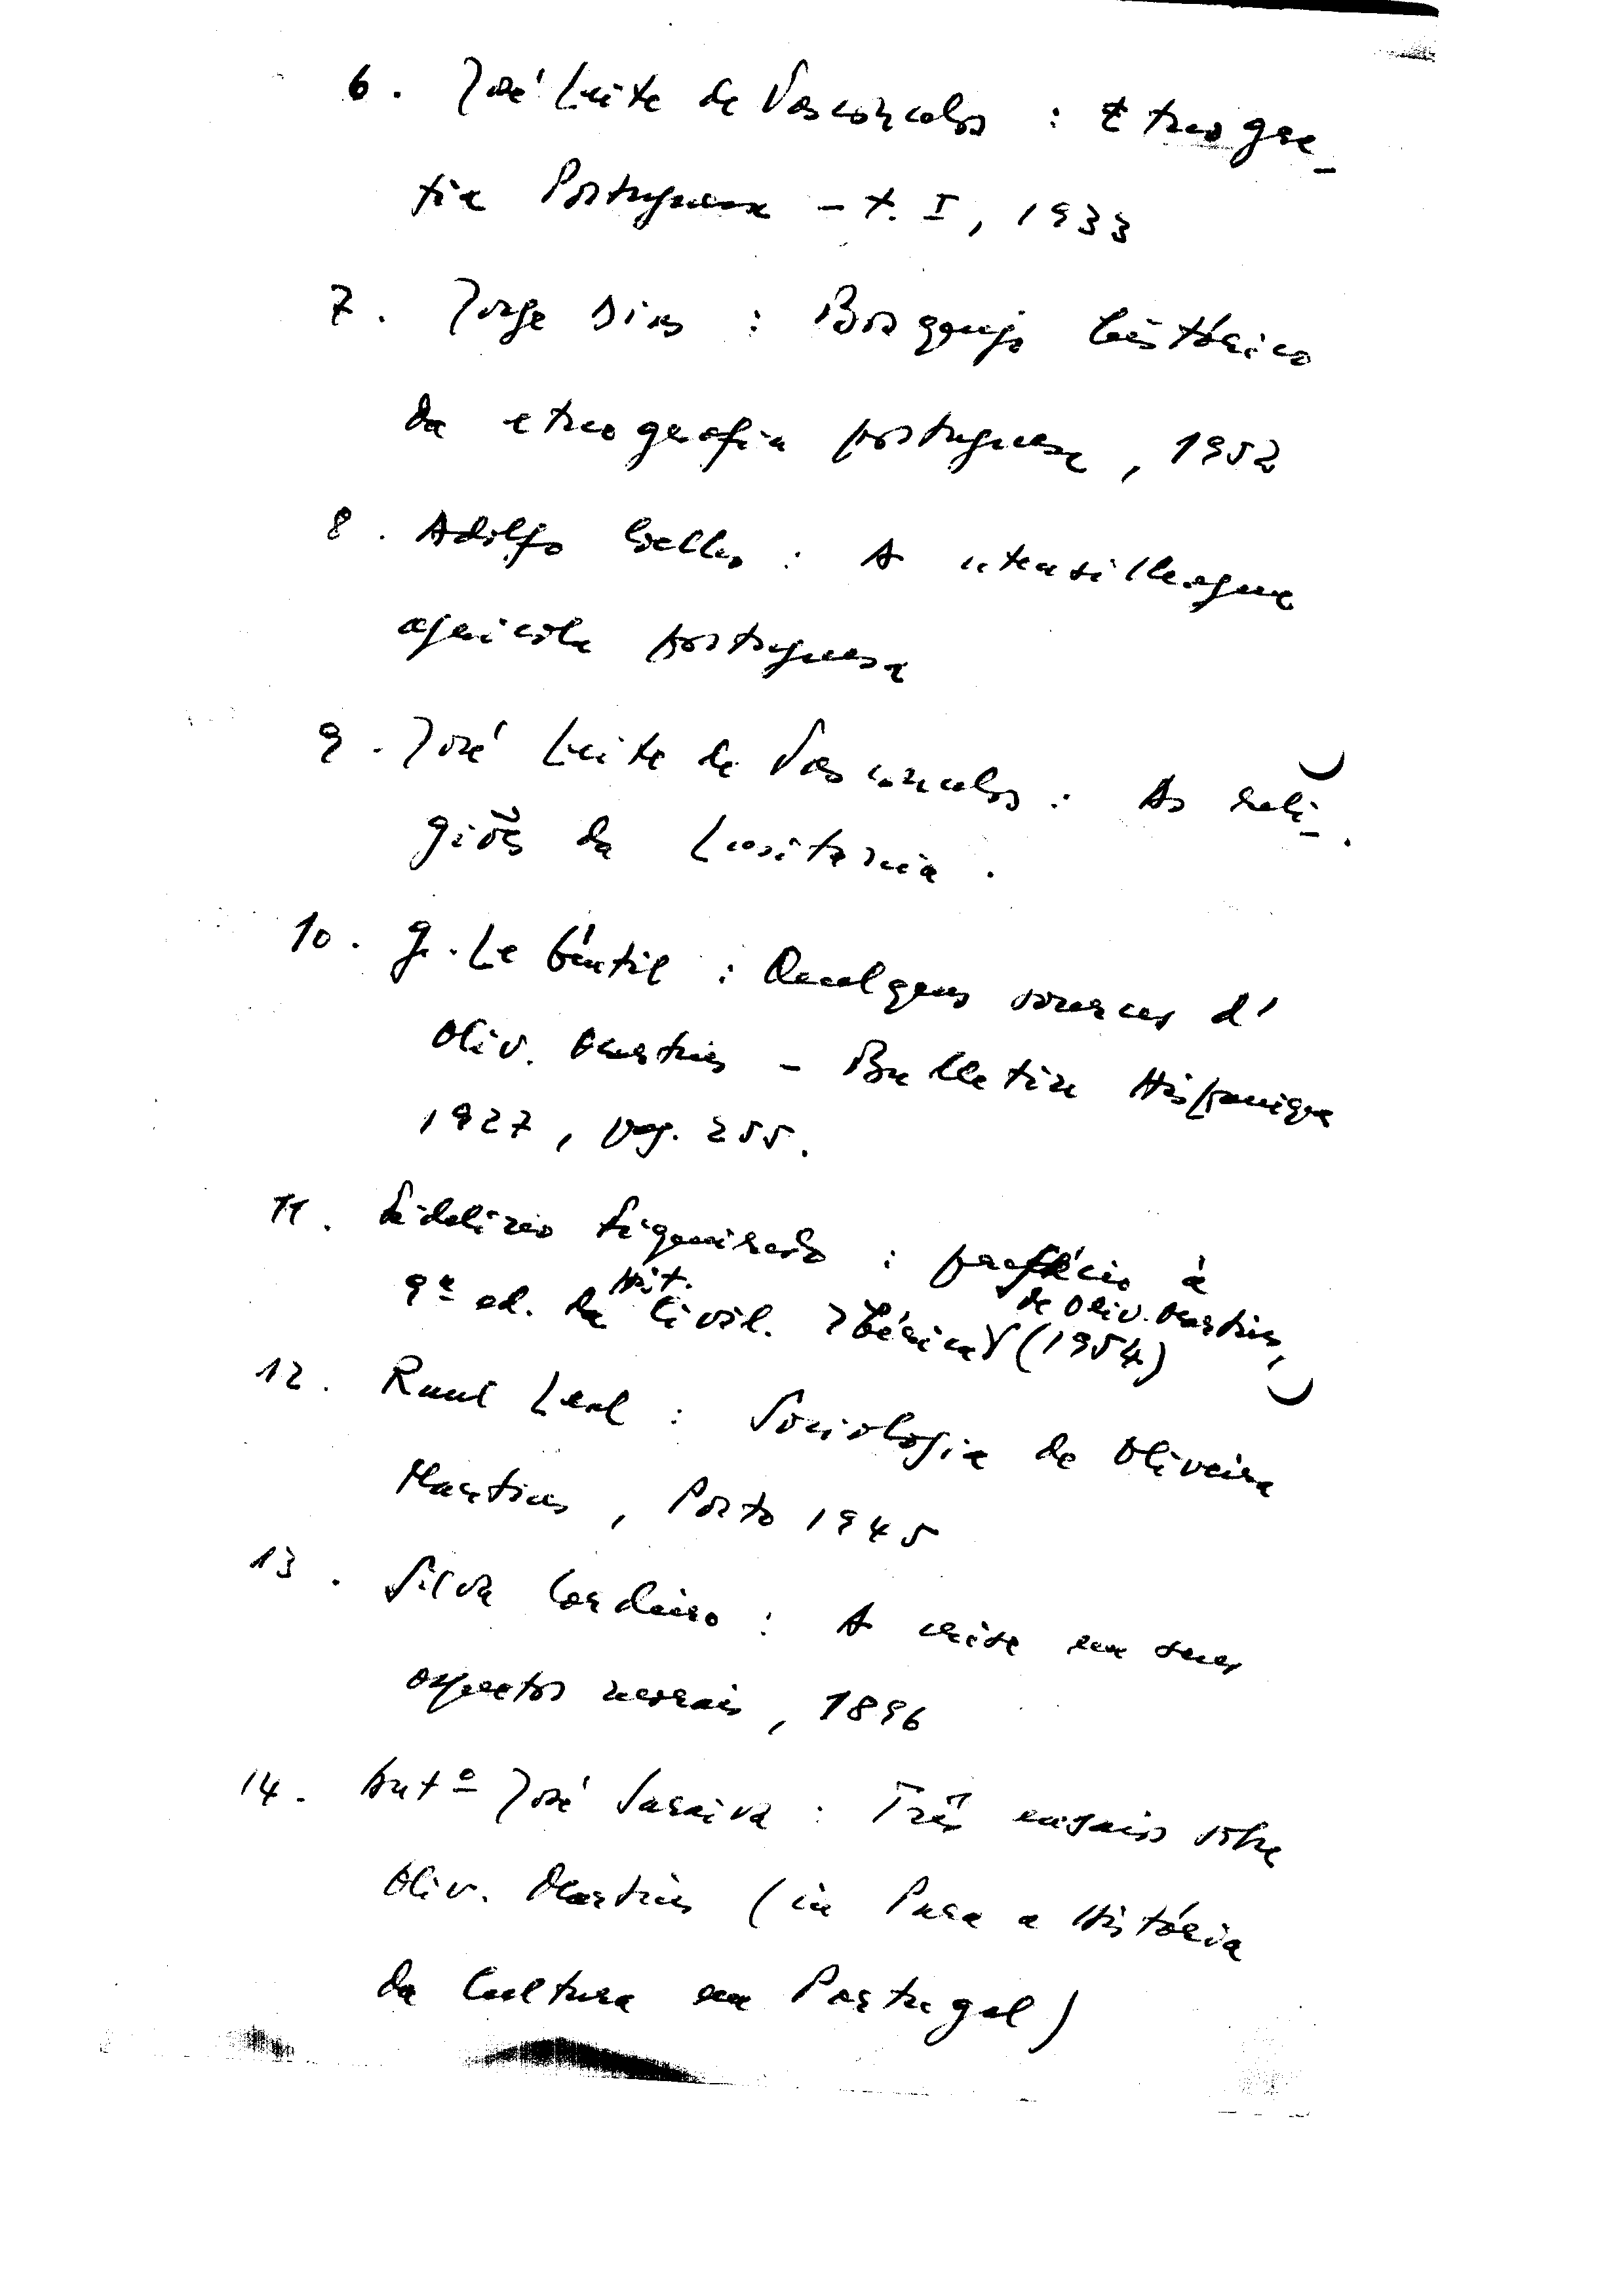 6. José Leite de Vasconcelos : Etnogra-
fia Portuguesa - t. I, 1933
7. Jorge Dias : Bosquejo histórico
da etnografia portuguesa, 1952
8. Adolfo Coelho : A utensilhagem
agrícola portuguesa
9. José Leite de Vasconcelos : As reli-
giões da Lusitania.
10. G. Le Gentil : Quelques sources d'
Oliv. Martins - Bulletin Hispanique
1927, pag. 255.
11. Fidelino Figueiredo : prefácio à
9ª ed. da Hist. Civil. Ibérica de Oliv. Martins, (1954)
12. Raul Leal : Sociologia de Oliveira
Martins, Porto 1945
13. Silva Cordeiro : A crise em seus
aspectos morais, 1896
14. Antº José Saraiva : Três ensaios sobre
Oliv. Martins (in Para a História
da Cultura em Portugal)